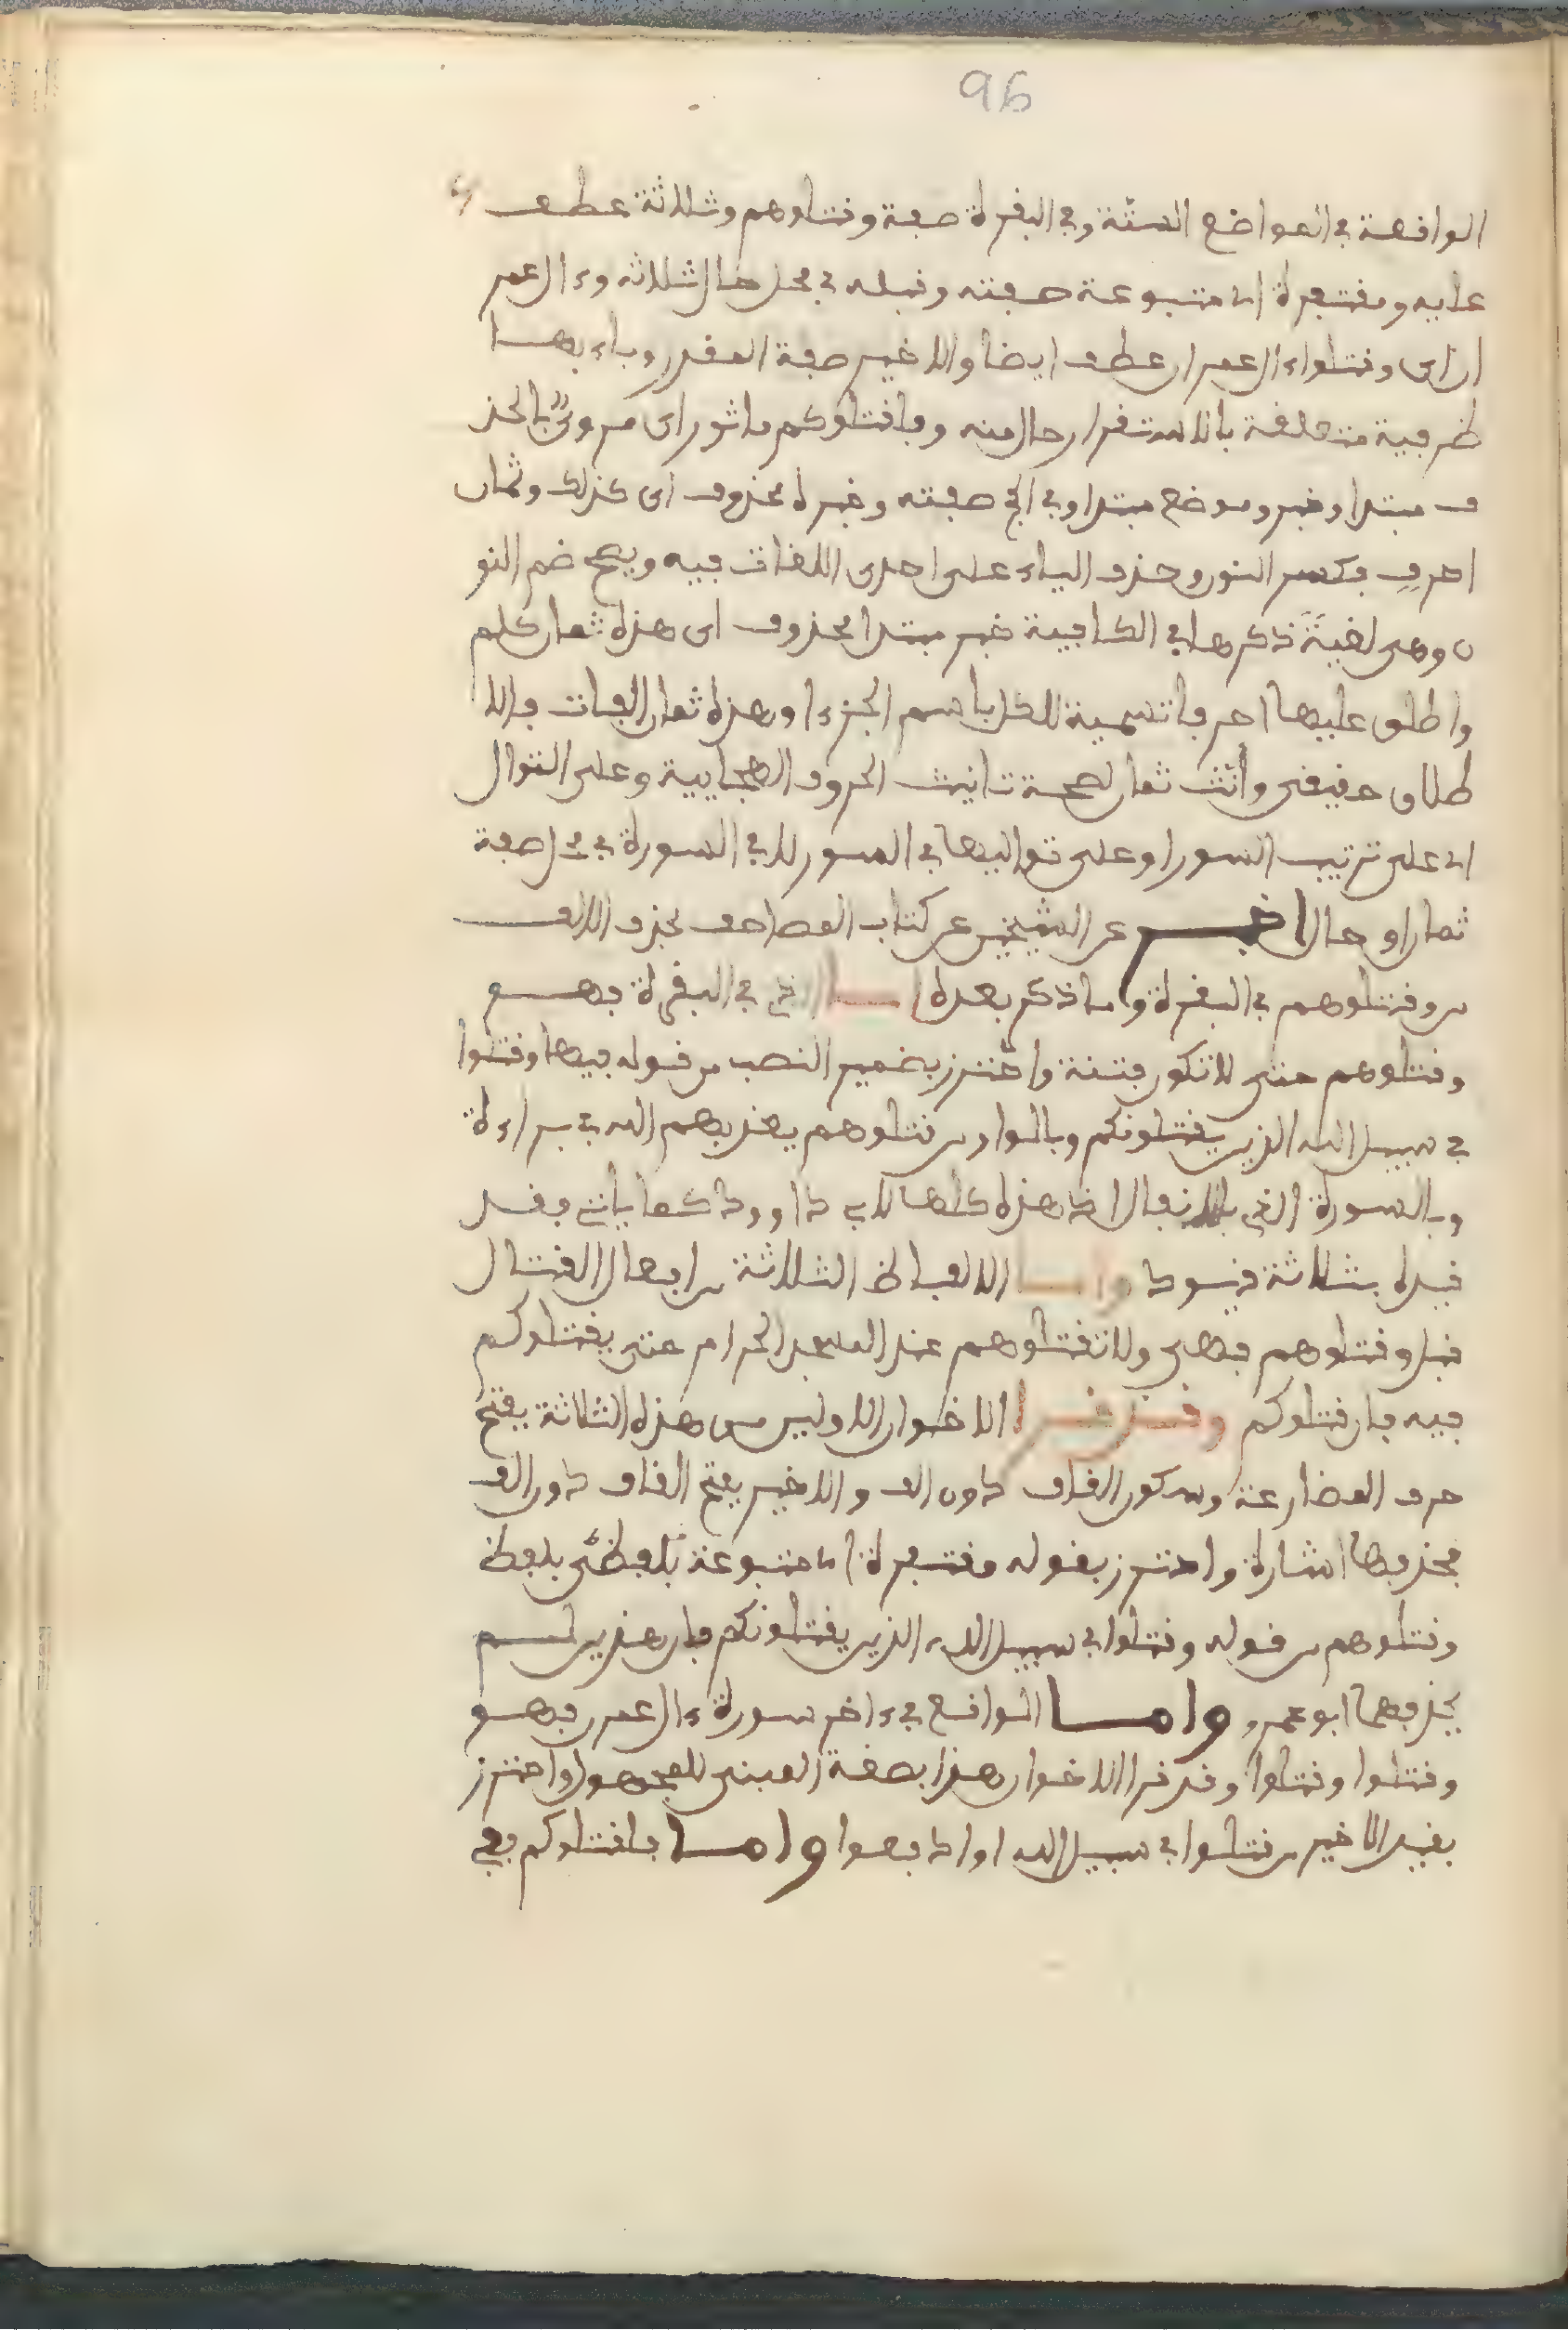 96
الواقعة في المواضع الستة وفي البقرة صفة وقتلوهم وثلاثة عطف
عليه ومقتفرة اى متبوعة صفته وقبله في محل حال ثلاثه وءال عمر
ان اى وقتلوا ءال عمران عطف ايضا والاخير صفة المقدر وباء بها
ظرفية متعلقة بالاستقرار حال منه وفاقتلوكم ماثور اى مروىٌّ بالحذ
ف مبتدا وخبر وموضع مبتدا وفي الحج صفته وخبره محذوف اى كذلك وثمان
احرفٍ بكسر النون وحذف الياء على احدى اللغات فيه ويصح ضم النو
ن وهي لغية ذكرها في الكافية خبر مبتدا محذوف اى هذه ثمان كلم
واطلق عليها احرفا تسمية للكل باسم الجزء او هذه ثمان الفات فالا
طلاق حقيقي وأنّث ثمان لصحة تانيث الحروف الهجايية وعلى التوال
اى على ترتيب السور او على تواليها في السور لا في السورة في محل صفة
ثمان او حال اخبر عن الشيخين عن كتاب المصاحف بحذف الالف
من وقتلوهم في البقرة وما ذكر بعده اما الذى في البقرة فهو
وقتلوهم حتى لا تكون فتنة واحترز بضمير النصب من قوله فيها وقتلوا
في سبيل الله الذين يقتلونكم وبالواو من قتلوهم يعذبهم الله في براءة
وبالسورة التي بالانفال اذ هذه كلها لابي داوود كما ياتي فقد
قيده بثلاثة قيود واما الالفاظ الثلاثة من افعال القتال
قبل وقتلوهم فهي ولا تقتلوهم عند المسجد الحرام حتى يقتلوكم
فيه فان قتلوكم وقد قرا الاخوان الاوليين من هذه الثلاثة بفتح
حرف المضارعة وسكون القاف دون الف والاخير بفتح القاف دون الف
فحذفها اشارة واحترز بقوله مقتفرة اى متبوعة بلفظَىْ بلفظ
وقتلوهم من قوله وقتلوا في سبيل الله الذين يقتلونكم فان هذين لم
يحذفهما ابو عمرو واما الواقع في ءاخر سورة ءال عمرن فهو
وقتلوا وقتلوا وقد قرا الاخوان هذا بصفة المبني للمجهول واحترز
بقيد الاخير من قتلوا في سبيل الله او ادفعوا واما فلقتلوكم ففي